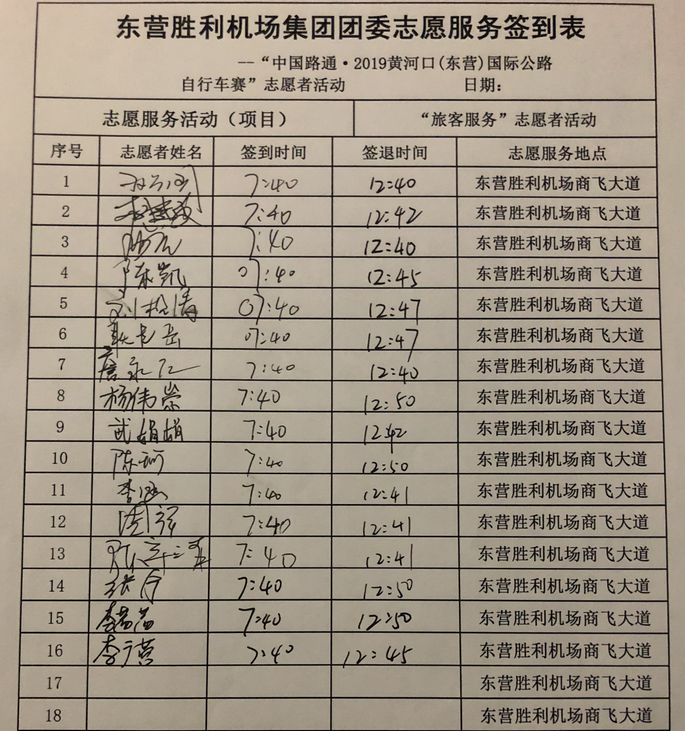 东营胜利机场集团团委志愿服务签到表
--“中国路通·2019黄河口(东营)国际公路
自行车赛”志愿者活动 日期:
志愿服务活动（项目） “旅客服务”志愿者活动
序号 志愿者姓名 签到时间 签退时间 志愿服务地点
1 7:40 12:40 东营胜利机场商飞大道
2 7:40 12:42 东营胜利机场商飞大道
3 7:40 12:40 东营胜利机场商飞大道
4 陈凯 07:40 12:45 东营胜利机场商飞大道
5 07:40 12:47 东营胜利机场商飞大道
6 07:40 12:47 东营胜利机场商飞大道
7 7:40 12:40 东营胜利机场商飞大道
8 杨伟荣 7:40 12:50 东营胜利机场商飞大道
9 武娟娟 7:40 12:42 东营胜利机场商飞大道
10 陈珂 7:40 12:50 东营胜利机场商飞大道
11 7:40 12:41 东营胜利机场商飞大道
12 7:40 12:41 东营胜利机场商飞大道
13 7:40 12:41 东营胜利机场商飞大道
14 7:40 12:50 东营胜利机场商飞大道
15 7:40 12:50 东营胜利机场商飞大道
16 李广莫 7:40 12:45 东营胜利机场商飞大道
17 东营胜利机场商飞大道
18 东营胜利机场商飞大道